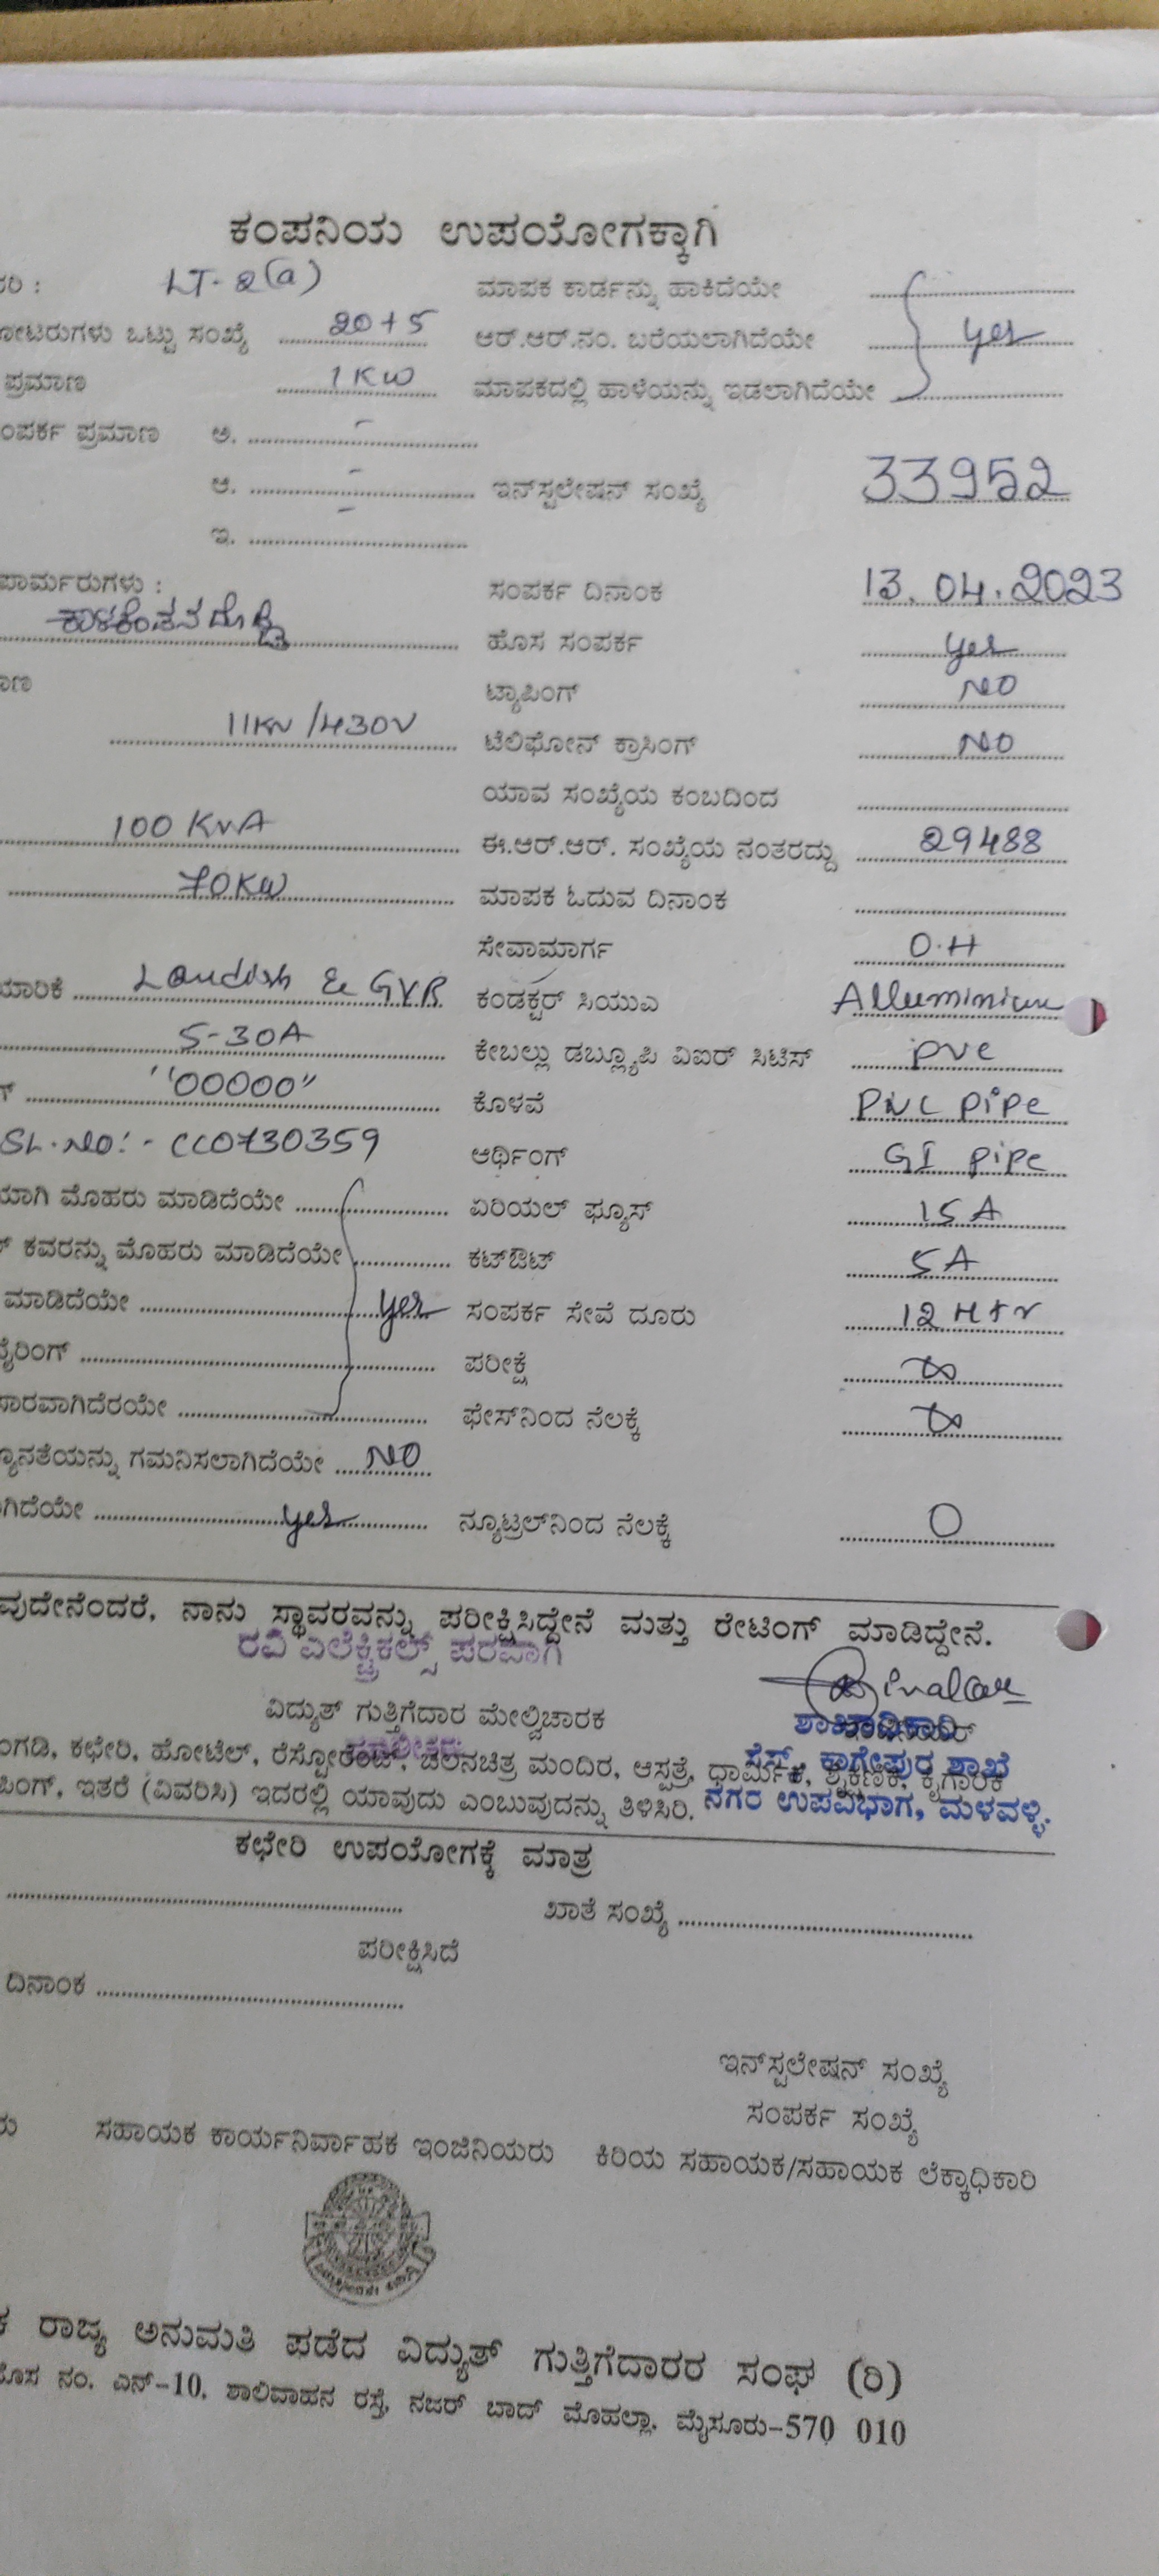 ಕಂಪನಿಯ ಉಪಯೋಗಕ್ಕಾಗಿ
LT-2(a) ಮಾಪಕ ಕಾರ್ಡನ್ನು ಹಾಕಿದೆಯೇ
ಒಟ್ಟು ಸಂಖ್ಯೆ 20+5 ಆರ್.ಆರ್.ನಂ. ಬರೆಯಲಾಗಿದೆಯೇ yes
ಪ್ರಮಾಣ 1KW ಮಾಪಕದಲ್ಲಿ ಹಾಳೆಯನ್ನು ಇಡಲಾಗಿದೆಯೇ
ಪ್ರಮಾಣ ಅ. -
ಆ. - ಇನ್‌ಸ್ಟಲೇಷನ್ ಸಂಖ್ಯೆ 33952
ಇ. -
ಸಂಪರ್ಕ ದಿನಾಂಕ 13.04.2023
ಹೊಸ ಸಂಪರ್ಕ yes
ಟ್ಯಾಪಿಂಗ್ NO
11KV/430V ಟೆಲಿಫೋನ್ ಕ್ರಾಸಿಂಗ್ NO
ಯಾವ ಸಂಖ್ಯೆಯ ಕಂಬದಿಂದ
100 KVA ಈ.ಆರ್.ಆರ್. ಸಂಖ್ಯೆಯ ನಂತರದ್ದು 29488
70KW ಮಾಪಕ ಓದುವ ದಿನಾಂಕ
ಸೇವಾಮಾರ್ಗ O.H
Landish & GYR ಕಂಡಕ್ಟರ್ ಸಿಯುಎ Alluminium
5-30A ಕೇಬಲ್ಲು ಡಬ್ಲ್ಯೂಪಿ ವಿಐರ್ ಸಿಟಿಸ್ pvc
"00000" ಕೊಳವೆ PVC pipe
SL.NO:- CC0730359 ಆರ್ಥಿಂಗ್ GI pipe
ಮೊಹರು ಮಾಡಿದೆಯೇ ಏರಿಯಲ್ ಫ್ಯೂಸ್ 15A
ಕವರನ್ನು ಮೊಹರು ಮಾಡಿದೆಯೇ ಕಟ್‌ಔಟ್ 5A
ಮಾಡಿದೆಯೇ yes ಸಂಪರ್ಕ ಸೇವೆ ದೂರು 12 Mtr
ಪರೀಕ್ಷೆ ∞
ಫೇಸ್‌ನಿಂದ ನೆಲಕ್ಕೆ ∞
ಗಮನಿಸಲಾಗಿದೆಯೇ NO
yes ನ್ಯೂಟ್ರಲ್‌ನಿಂದ ನೆಲಕ್ಕೆ 0
ನಾನು ಸ್ಥಾವರವನ್ನು ಪರೀಕ್ಷಿಸಿದ್ದೇನೆ ಮತ್ತು ರೇಟಿಂಗ್ ಮಾಡಿದ್ದೇನೆ.
ರವಿ ಎಲೆಕ್ಟ್ರಿಕಲ್ಸ್ ಪರವಾಗಿ
ವಿದ್ಯುತ್ ಗುತ್ತಿಗೆದಾರ ಮೇಲ್ವಿಚಾರಕ
ಶಾಖಾಧಿಕಾರಿ
ಸೆಸ್ಕ್, ಕಾಗೇಪುರ ಶಾಖೆ
ನಗರ ಉಪವಿಭಾಗ, ಮಳವಳ್ಳಿ.
ಕಛೇರಿ, ಹೋಟೆಲ್, ರೆಸ್ಟೋರೆಂಟ್, ಚಲನಚಿತ್ರ ಮಂದಿರ, ಆಸ್ಪತ್ರೆ, ಧಾರ್ಮಿಕ, ಶೈಕ್ಷಣಿಕ, ಕೈಗಾರಿಕೆ
ಇತರೆ (ವಿವರಿಸಿ) ಇದರಲ್ಲಿ ಯಾವುದು ಎಂಬುವುದನ್ನು ತಿಳಿಸಿರಿ.
ಕಛೇರಿ ಉಪಯೋಗಕ್ಕೆ ಮಾತ್ರ
ಖಾತೆ ಸಂಖ್ಯೆ
ಪರೀಕ್ಷಿಸಿದೆ
ದಿನಾಂಕ
ಇನ್‌ಸ್ಟಲೇಷನ್ ಸಂಖ್ಯೆ
ಸಂಪರ್ಕ ಸಂಖ್ಯೆ
ಸಹಾಯಕ ಕಾರ್ಯನಿರ್ವಾಹಕ ಇಂಜಿನಿಯರು ಕಿರಿಯ ಸಹಾಯಕ/ಸಹಾಯಕ ಲೆಕ್ಕಾಧಿಕಾರಿ
ರಾಜ್ಯ ಅನುಮತಿ ಪಡೆದ ವಿದ್ಯುತ್ ಗುತ್ತಿಗೆದಾರರ ಸಂಘ (ರಿ)
ನಂ. ಎನ್-10, ಶಾಲಿವಾಹನ ರಸ್ತೆ, ನಜರ್ ಬಾದ್ ಮೊಹಲ್ಲಾ, ಮೈಸೂರು-570 010